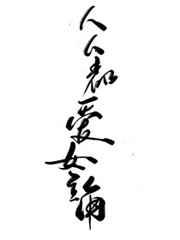 人人都愛女主角